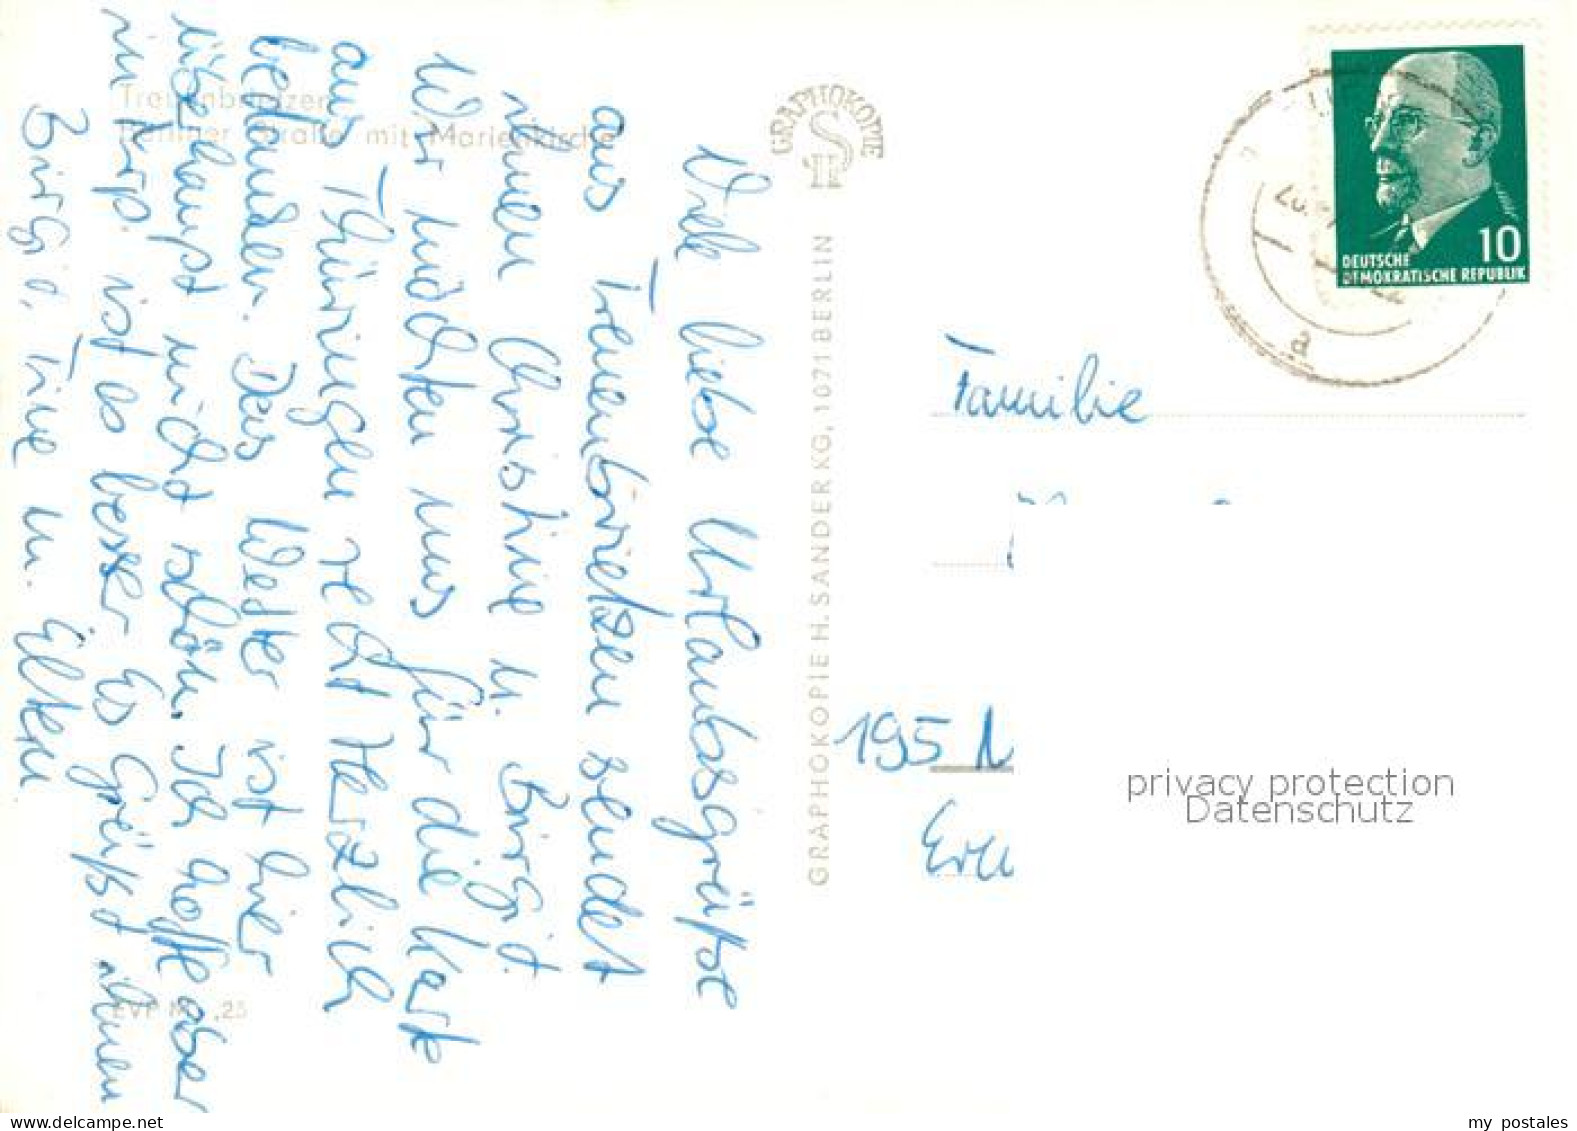 Treuenbrietzen
Berliner Straße mit Marienkirche
Viele liebe Urlaubsgrüße
aus Treuenbrietzen sendet
ihnen Christine u. Birgit.
Wir möchten uns für die Karte
aus Thüringen recht Herzlich
bedanken. Das Wetter ist hier
überhaupt nicht schön. Ich hoffe aber
ist es besser Es Grüßt ihnen
Birgit, Tine u. Eltern
EVP M ,25
GRAPHOKOPIE
H S
GRAPHOKOPIE H. SANDER KG, 1071 BERLIN
10
DEUTSCHE
DEMOKRATISCHE REPUBLIK
a
Familie
195
privacy protection
Datenschutz
my postales